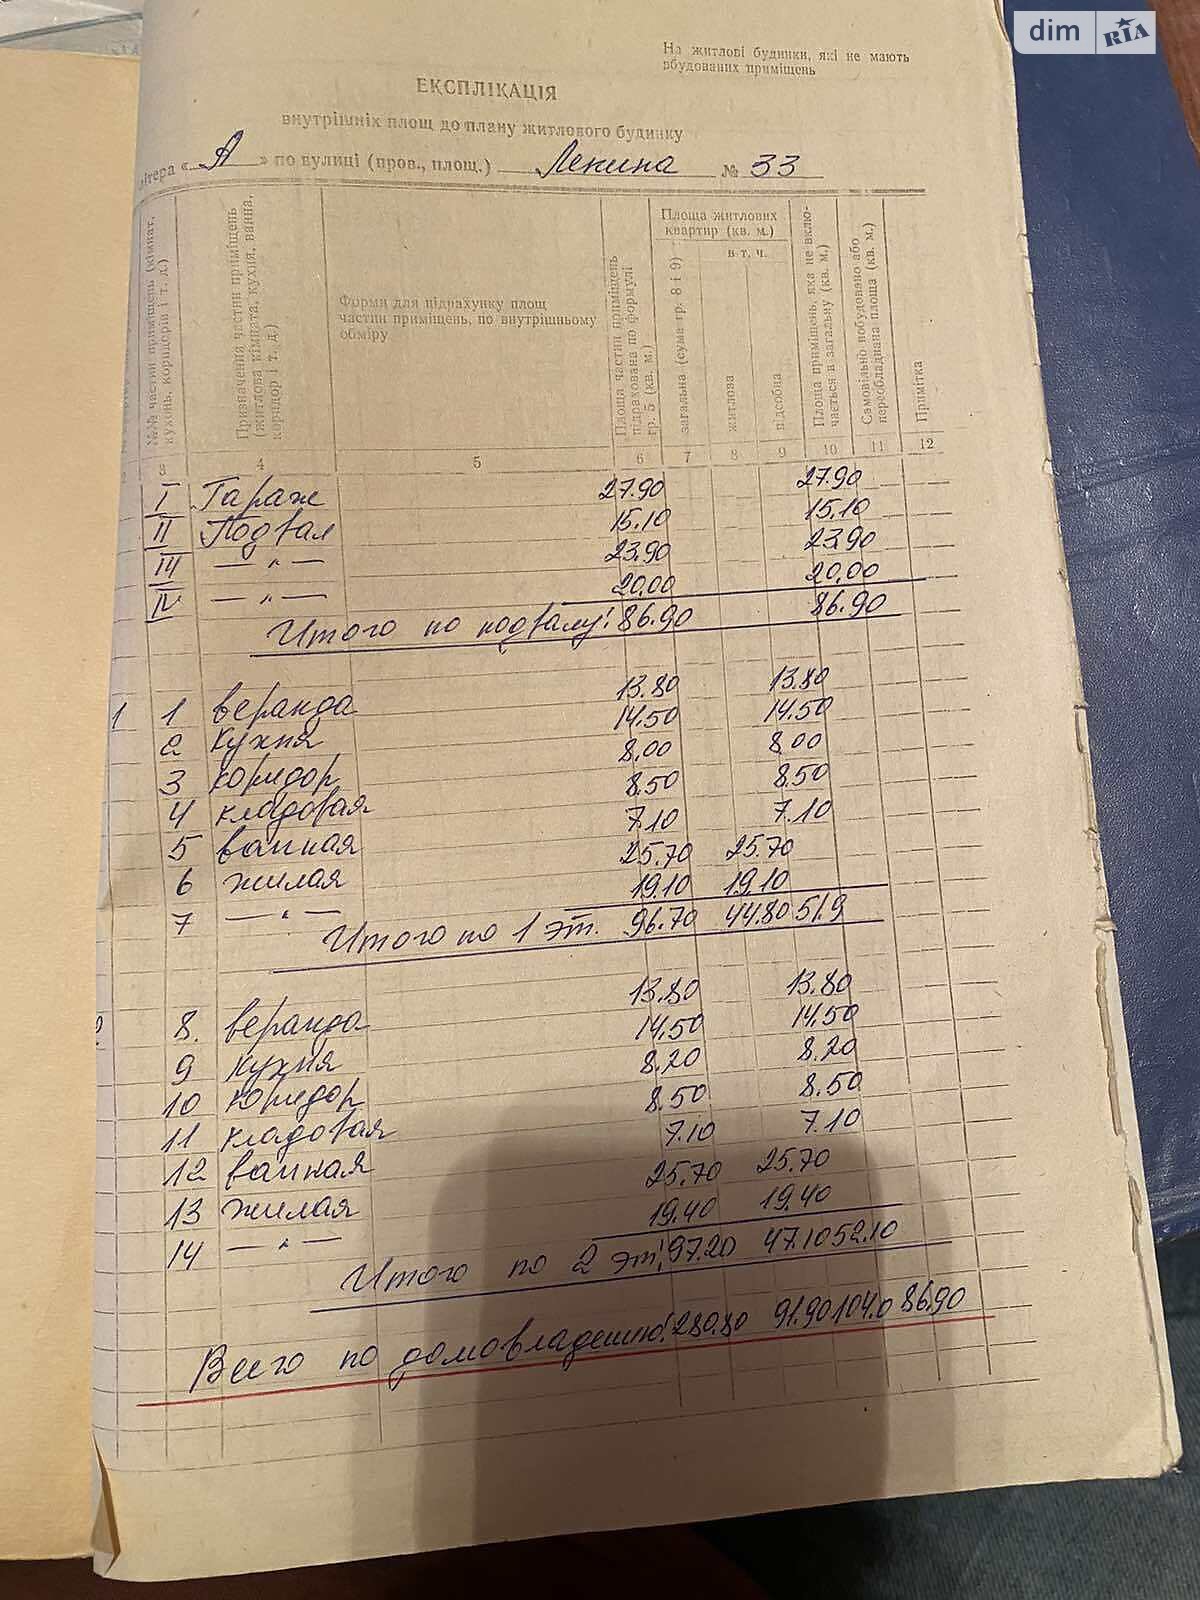 dim RIA
На житлові будинки, які не мають
вбудованих приміщень
ЕКСПЛІКАЦІЯ
внутрішніх площ до плану житлового будинку
ітера « А » по вулиці (пров., площ.) Ленина № 33
№№ частин приміщень (кімнат, кухонь, коридорів і т. д.)
Призначення частин приміщень (житлова кімната, кухня, ванна, коридор і т. д.)
Форми для підрахунку площ частин приміщень, по внутрішньому обміру
Площа частин приміщень підрахована по формулі гр. 5 (кв. м.)
Площа житлових квартир (кв. м.)
загальна (сума гр. 8 і 9)
в т. ч.
житлова
підсобна
Площа приміщень, яка не включається в загальну (кв. м.)
Самовільно побудовано або переобладнана площа (кв. м.)
Примітка
3 4 5 6 7 8 9 10 11 12
I Гараж 27.90 27.90
II Подвал 15.10 15.10
III — " — 23.90 23.90
IV — " — 20.00 20.00
Итого по подвалу: 86.90 86.90
1 1 веранда 13.80 13.80
2 кухня 14.50 14.50
3 коридор 8.00 8.00
4 кладовая 8.50 8.50
5 ванная 7.10 7.10
6 жилая 25.70 25.70
7 — " — 19.10 19.10
Итого по 1 эт. 96.70 44.80 51.9
2 8. веранда 13.80 13.80
9 кухня 14.50 14.50
10 коридор 8.20 8.20
11 кладовая 8.50 8.50
12 ванная 7.10 7.10
13 жилая 25.70 25.70
14 — " — 19.40 19.40
Итого по 2 эт: 97.20 47.10 52.10
Всего по домовладению: 280.80 91.90 104.0 86.90